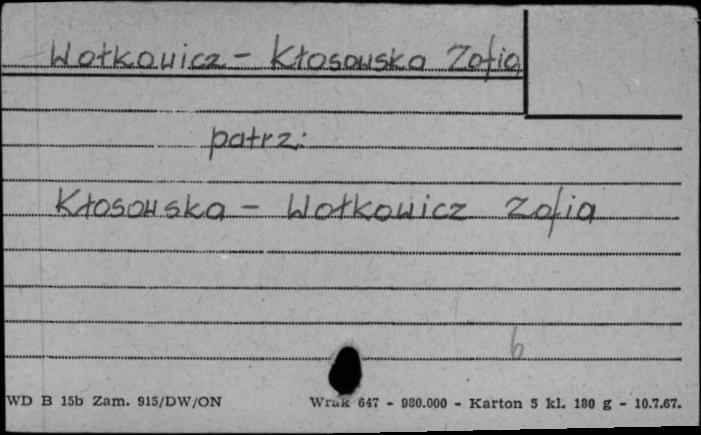 Wołkowicz - Kłosowska Zofia
patrz:
Kłosowska - Wołkowicz Zofia
6
WD B 15b Zam. 915/DW/ON
Wrak 647 - 930.000 - Karton 5 kl. 180 g - 10.7.67.